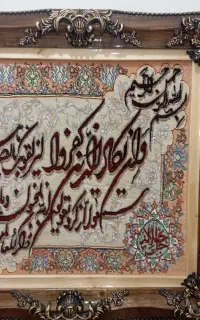 بسم الله الرحمن الرحيم
وان يكاد الذين كفروا ليزلقونك
سمعوا الذكر و يقولون انه لمجنون